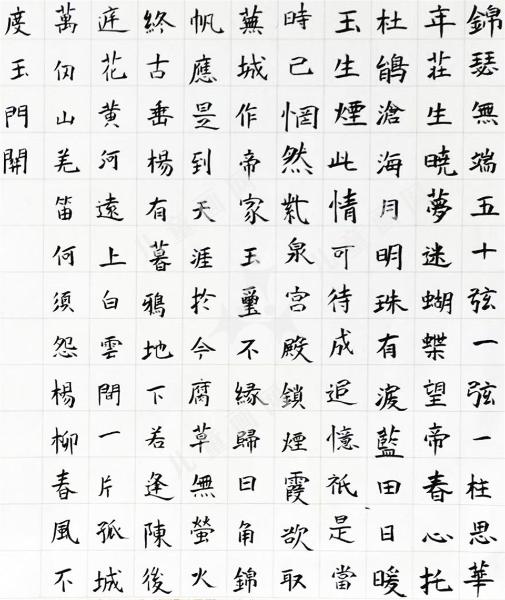 錦瑟無端五十弦一弦一柱思華
年莊生曉夢迷蝴蝶望帝春心托
杜鵑滄海月明珠有淚藍田日暖
玉生煙此情可待成追憶祇是當
時已惘然紫泉宮殿鎖煙霞欲取
蕪城作帝家玉璽不緣歸日角錦
帆應是到天涯於今腐草無螢火
終古垂楊有暮鴉地下若逢陳後
庭花黃河遠上白雲間一片孤城
萬仞山羌笛何須怨楊柳春風不
度玉門開